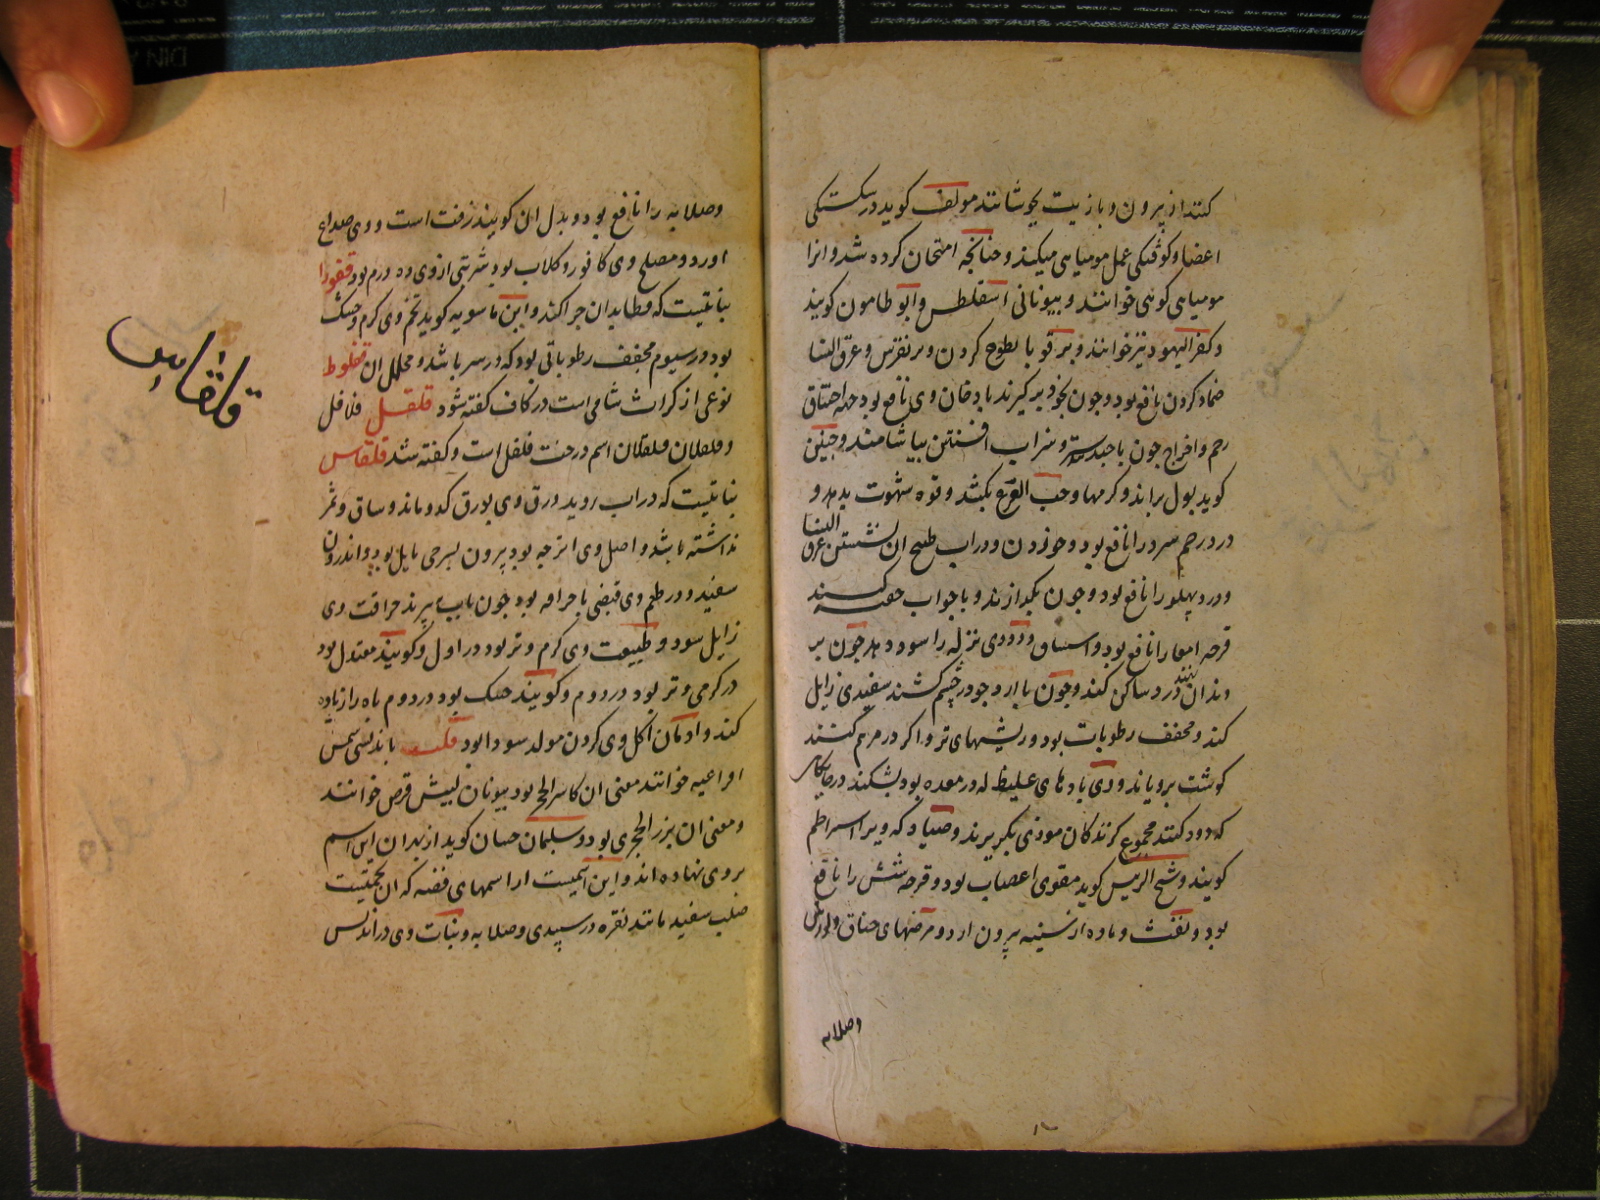 کنند از بیرون و بازیت بجوشانند مولف کوید در شکستکی
اعضا و کوفتکی عمل مومیایی میکند و چنانچه امتحان کرده شد و انرا
مومیایی کوهی خوانند و بیونانی اسقلطس وابوطامون کویند
وکفرالیهود نیز خوانند و بر قوبا بطوخ کردن و بر نقرس و عرق النسا
ضماد کردن نافع بود و چون بخود برکیرند یا دخان وی نافع بود جهة اختناق
رحم و اخراج چون با جندبیدستر و شراب افسنتین بیاشامند و جنین
کوید بول براند و کرمها و حب القرع بکشد و قوة شهوت بدهد و
درد رحم سرد را نافع بود و خوردن و در اب طبیخ ان نشستن عرق النسا
و درد پهلو را نافع بود و چون بکدازند و با جواب حقنه کنند
قرحه امعا را نافع بود و دودی نزله را سود دهد چون بر
دندان نهند درد ساکن کند و چون با در چشم کشند سفیدی زایل
کند و مجفف رطوبات بود و ریشهای تر و اکر در مرهم کنند
کوشت برویاند و وی بادهای غلیظ که در معده بود بشکند در
که دود کنند مجموع کزندکان موذی بکریزند و که ویرا
کویند و شیخ الرییس کوید مقوی اعصاب بود و قرحه شش را نافع
بود و نفث و ماده از سینه بیرون ارد و مرضهای خناق و لوزتین
وصلابه
وصلابه را نافع بود و بدل ان کویند زفت است و وی صداع
اورد و مصلح وی کافور و کلاب بود و شربتی از وی ده درم بود قفورا
نباتیست که قطا بدان چرا کند و ابن ماسویه کوید تخم وی کرم و خشک
بود در سیوم مجفف رطوباتی بود که در سر باشد و محلل ان قفلوط
نوعی از کراث شامی است در کاف کفته شود قلقل فلافل
وقلقلان وقلقلان اسم درخت فلفل است و کفته شد قلقاس
نباتیست که در اب روید ورق وی بورق کدو ماند و ساق و ثمر
نداشته باشد و اصل وی اترجه بود بیرون بسرخی مایل بود و اندرون
سفید و در طعم وی قبضی با حرافه بود و چون باب بپزند حرافت وی
زایل شود و طبیعت وی کرم و تر بود در اول و کویند معتدل بود
در کرمی و تر بود در دوم و کویند خشک بود در دوم باه را زیاده
کند و ادمان اکل وی کردن مولد سودا بود قلت باندلسی شمس
اوراعیه خوانند معنی ان کاسر الحجر بود بیونان لیبش قرص خوانند
و معنی ان بزر الحجری بود و سلیمان حسان کوید از بهر ان این اسم
بر وی نهاده اند و این اسمیست از اسمهای فضه که ان تخمیست
صلب سفید مانند نقره در سپیدی و صلابه و نبات وی در اندلس
قلقاس